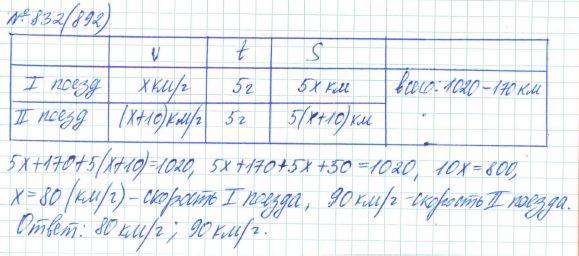 № 832(892)
v t S
I поезд x км/г 5г 5x км всего: 1020 - 170 км
II поезд (x+10)км/г 5г 5(x+10)км
5x+170+5(x+10)=1020, 5x+170+5x+50=1020, 10x=800,
x=80 (км/г) - скорость I поезда, 90 км/г - скорость II поезда.
Ответ: 80 км/г; 90 км/г.